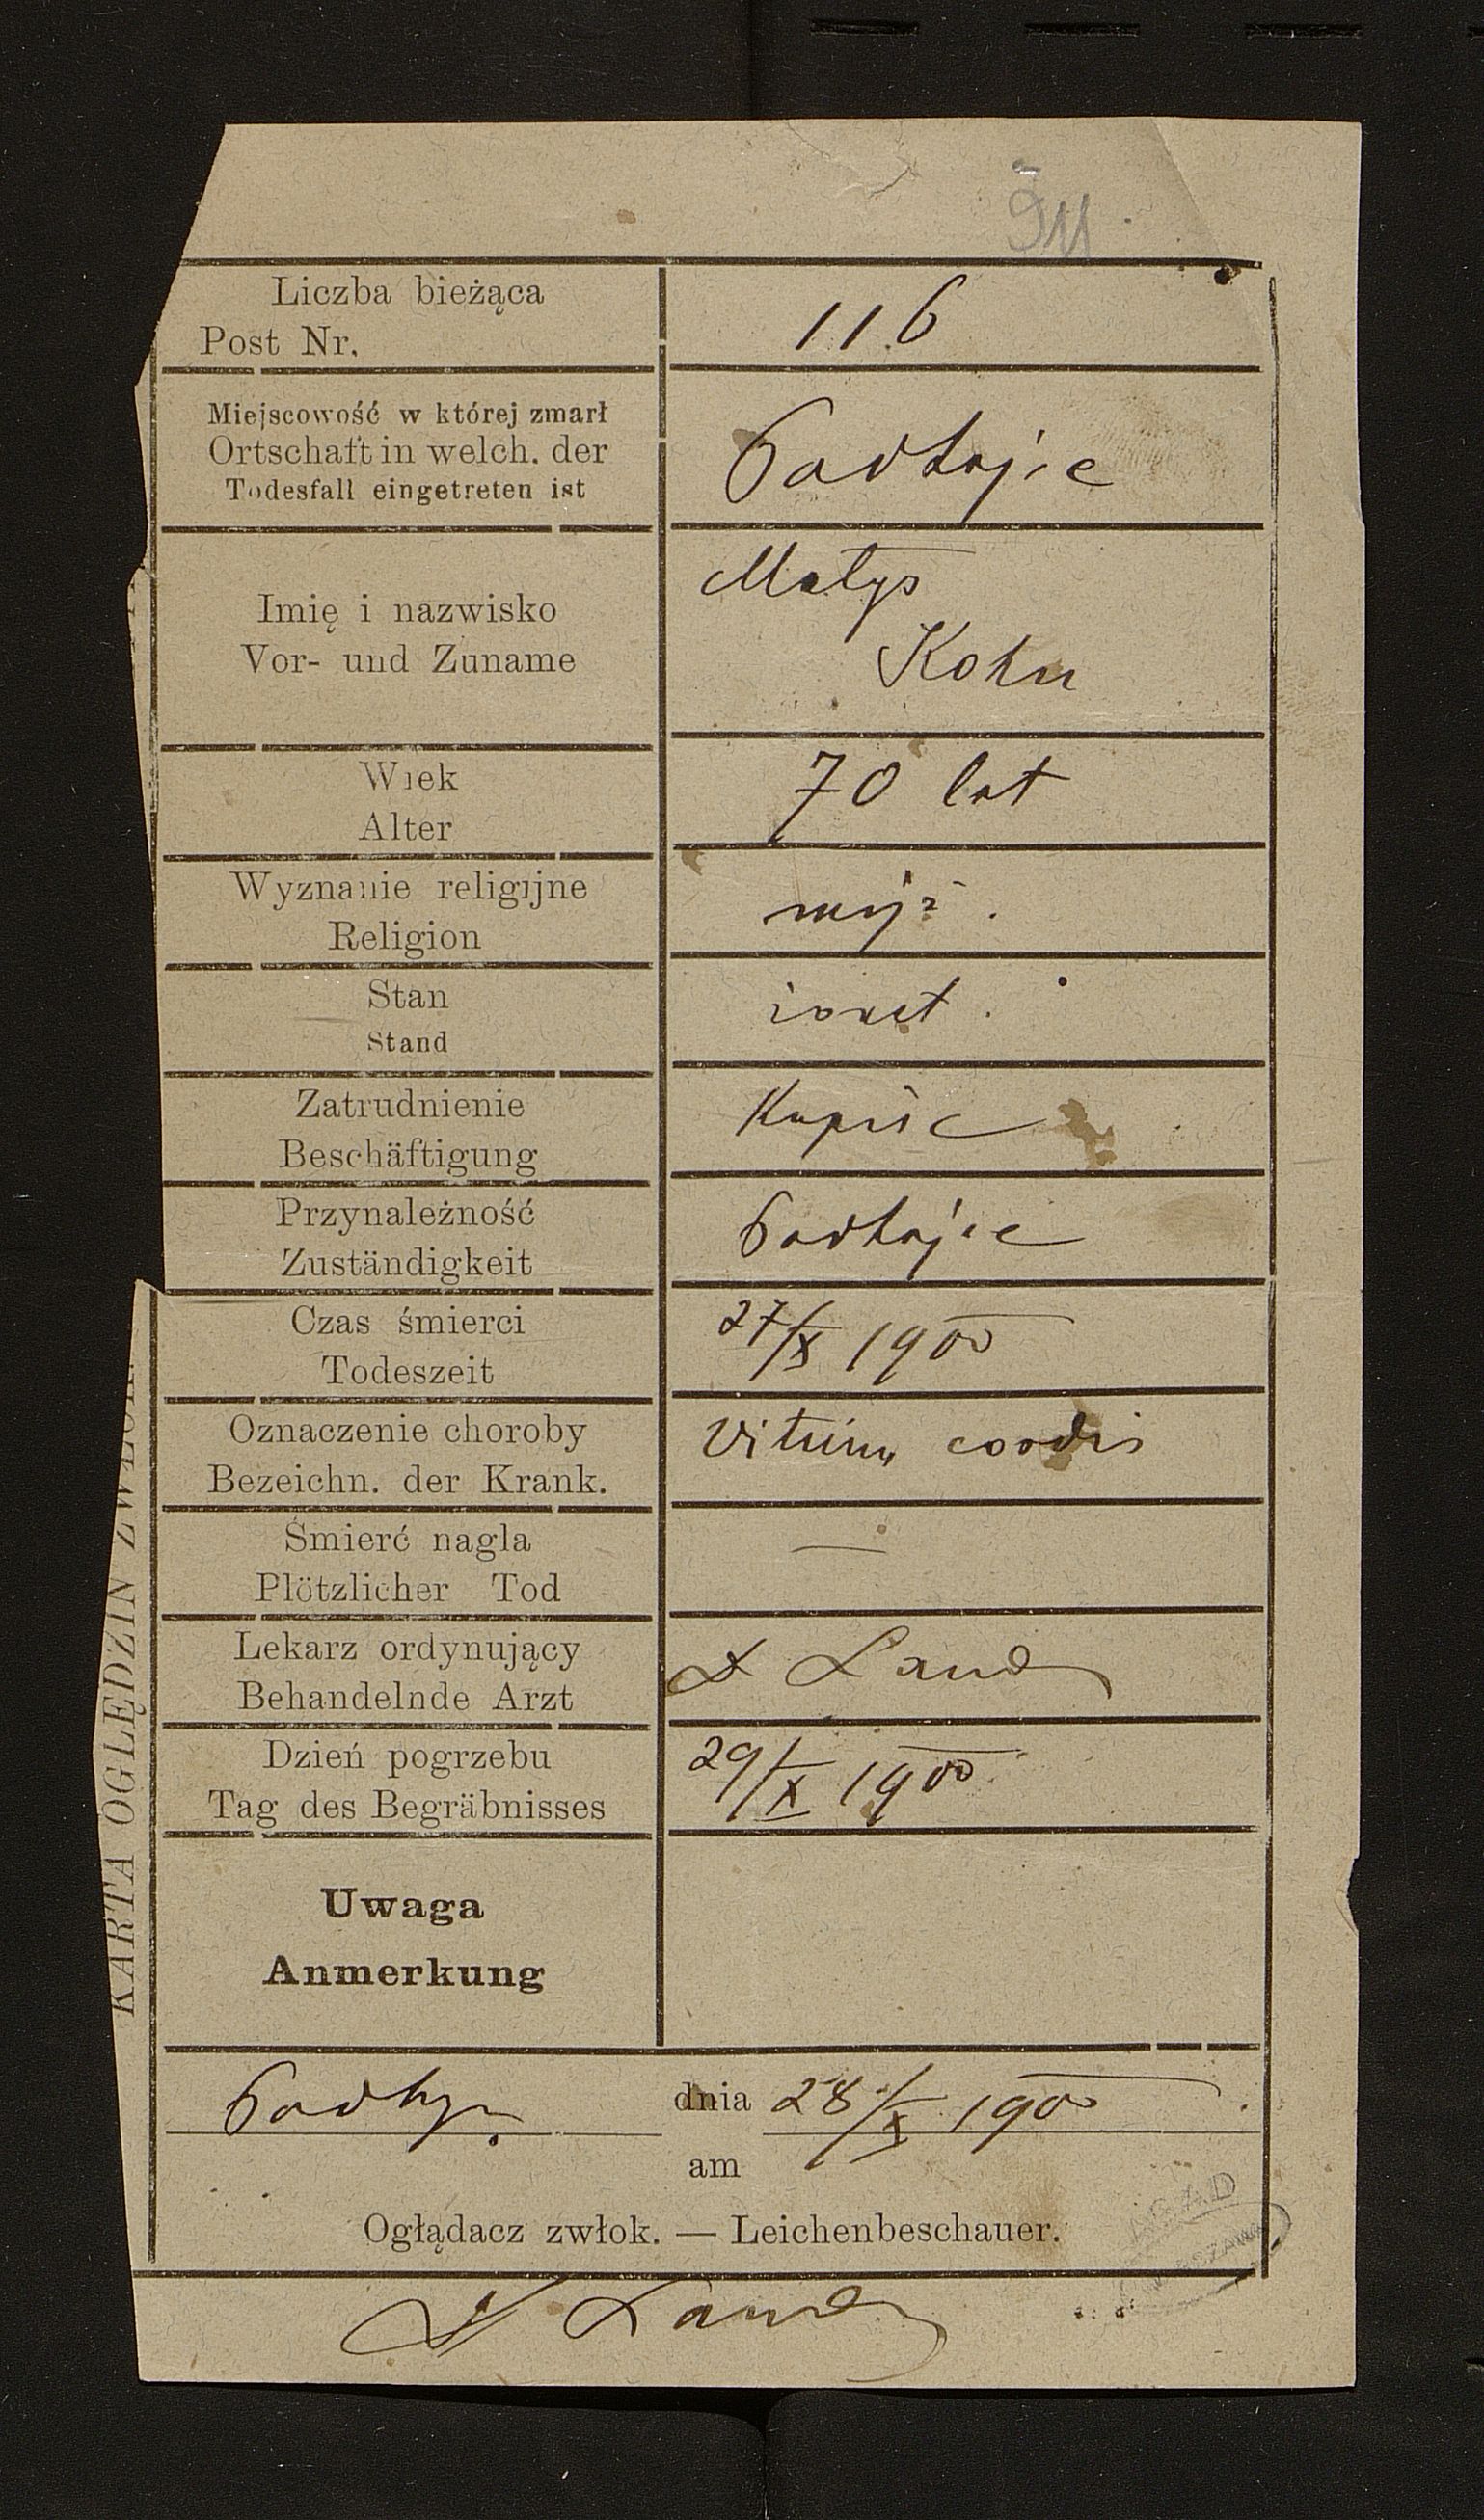 Liczba bieżąca
Post Nr.
116
Miejscowość w której zmarł
Ortschaft in welch. der
Todesfall eingetreten ist
Podhajce
Imię i nazwisko
Vor- und Zuname
Matys
Kohn
Wiek
Alter
70 lat
Wyznanie religijne
Religion
mojż.
Stan
Stand
żonat.
Zatrudnienie
Beschäftigung
Kupiec
Przynależność
Zuständigkeit
Podhajce
Czas śmierci
Todeszeit
27/X 1900
Oznaczenie choroby
Bezeichn. der Krank.
Vitium cordis
Śmierć nagla
Plötzlicher Tod
—
Lekarz ordynujący
Behandelnde Arzt
Landa
Dzień pogrzebu
Tag des Begräbnisses
29/X 1900
Uwaga
Anmerkung
dnia 28/X 1900
am
Oglądacz zwłok. — Leichenbeschauer.
Landa
KARTA OGLĘDZIN ZWŁOK
AGAD
WARSZAWA